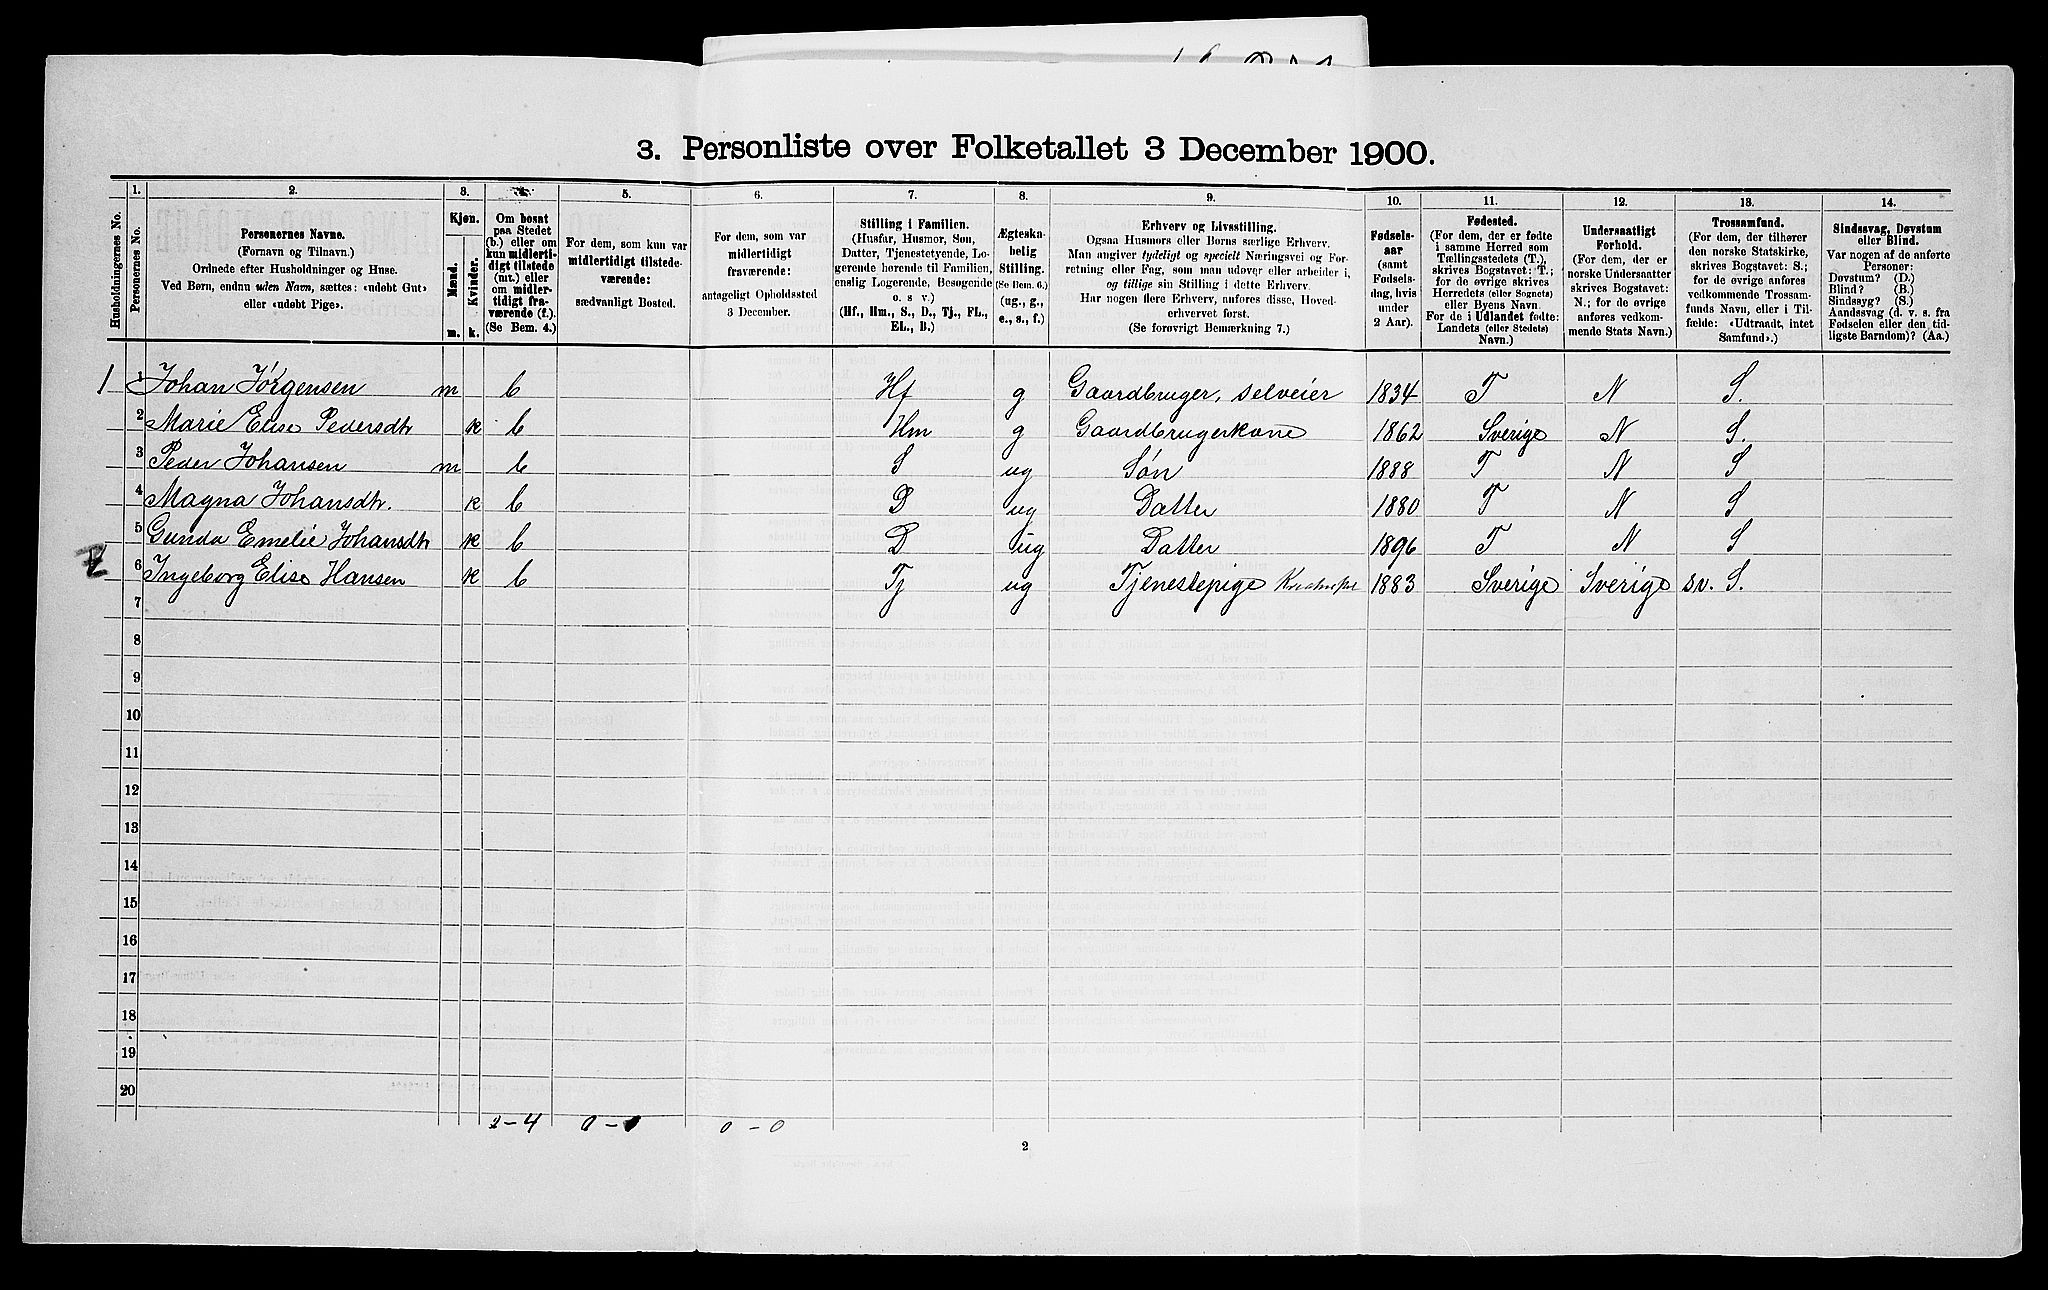 3. Personliste over Folketallet 3 December 1900.
1. 2. 3. 5. 6. 7. 8. 9. 10. 11. 12. 13. 14.
Husholdningernes No.
Personernes No.
Personernes Navne.
(Fornavn og Tilnavn.)
Ordnede efter Husholdninger og Huse.
Ved Børn, endnu uden Navn, sættes: «udøbt Gut»
eller «udøbt Pige».
Kjøn.
Mænd.
Kvinder.
m. k.
Om bosat
paa Stedet
(b.) eller om
kun midlerti-
digt tilstede
(mt.) eller
om midler-
tidigt fra-
værende (f.).
(Se Bem. 4.)
For dem, som kun var
midlertidigt tilstede-
værende:
sædvanligt Bosted.
For dem, som var
midlertidigt
fraværende:
antageligt Opholdssted
3 December.
Stilling i Familien.
(Husfar, Husmor, Søn,
Datter, Tjenestetyende, Lo-
gerende hørende til Familien,
enslig Logerende, Besøgende
o. s v.)
(Hf., Hm., S., D., Tj., FL.,
EL., B.)
Ægteska-
belig
Stilling.
(Se Bem. 6.)
(ug., g.,
e., s., f.)
Erhverv og Livsstilling.
Ogsaa Husmors eller Børns særlige Erhverv.
Man angiver tydeligt og specielt Næringsvei og For-
retning eller Fag, som man udøver eller arbeider i,
og tillige sin Stilling i dette Erhverv.
Har nogen flere Erhverv, anføres disse, Hoved-
erhvervet først.
(Se forøvrigt Bemerkning 7.)
Fødsels-
aar
(samt
Fødsels-
dag, hvis
under
2 Aar).
Fødested.
(For dem, der er fødte
i samme Herred som
Tællingsstedets (T.),
skrives Bogstavet: T.;
for de øvrige skrives
Herredets (eller Sognets)
eller Byens Navn.
For de i Udlandet fødte:
Landets (eller Stedets)
Navn.)
Undersaatligt
Forhold.
(For dem, der er
norske Undersaatter
skrives Bogstavet:
N.; for de øvrige
anføres vedkom-
mende Stats Navn.)
Trossamfund.
(For dem, der tilhører
den norske Statskirke,
skrives Bogstavet: S.;
for de øvrige anføres
vedkommende Trossam-
funds Navn, eller i Til-
fælde: «Udtraadt, intet
Samfund».)
Sindssvag, Døvstum
eller Blind.
Var nogen af de anførte
Personer:
Døvstum? (D.)
Blind? (B.)
Sindssyg? (S.)
Aandssvag (d. v. s. fra
Fødselen eller den tid-
ligste Barndom)? (Aa.)
1 1 Johan Jørgensen m b Hf g Gaardbruger, selveier 1834 T N S.
2 Marie Elise Pedersdtr k b Hm g Gaardbrugerkone 1862 Sverige N S.
3 Peder Johansen m b S ug Søn 1888 T N S
4 Magna Johansdtr. k b D ug Datter 1880 T N S
5 Gunda Emelie Johansdtr k b D ug Datter 1896 T N S
6 Ingeborg Elise Hansen k b Tj ug Tjenestepige 1883 Sverige Sverige sv. S.
7
8
9
10
11
12
13
14
15
16
17
18
19
20
2-4 0-0 0-0
2